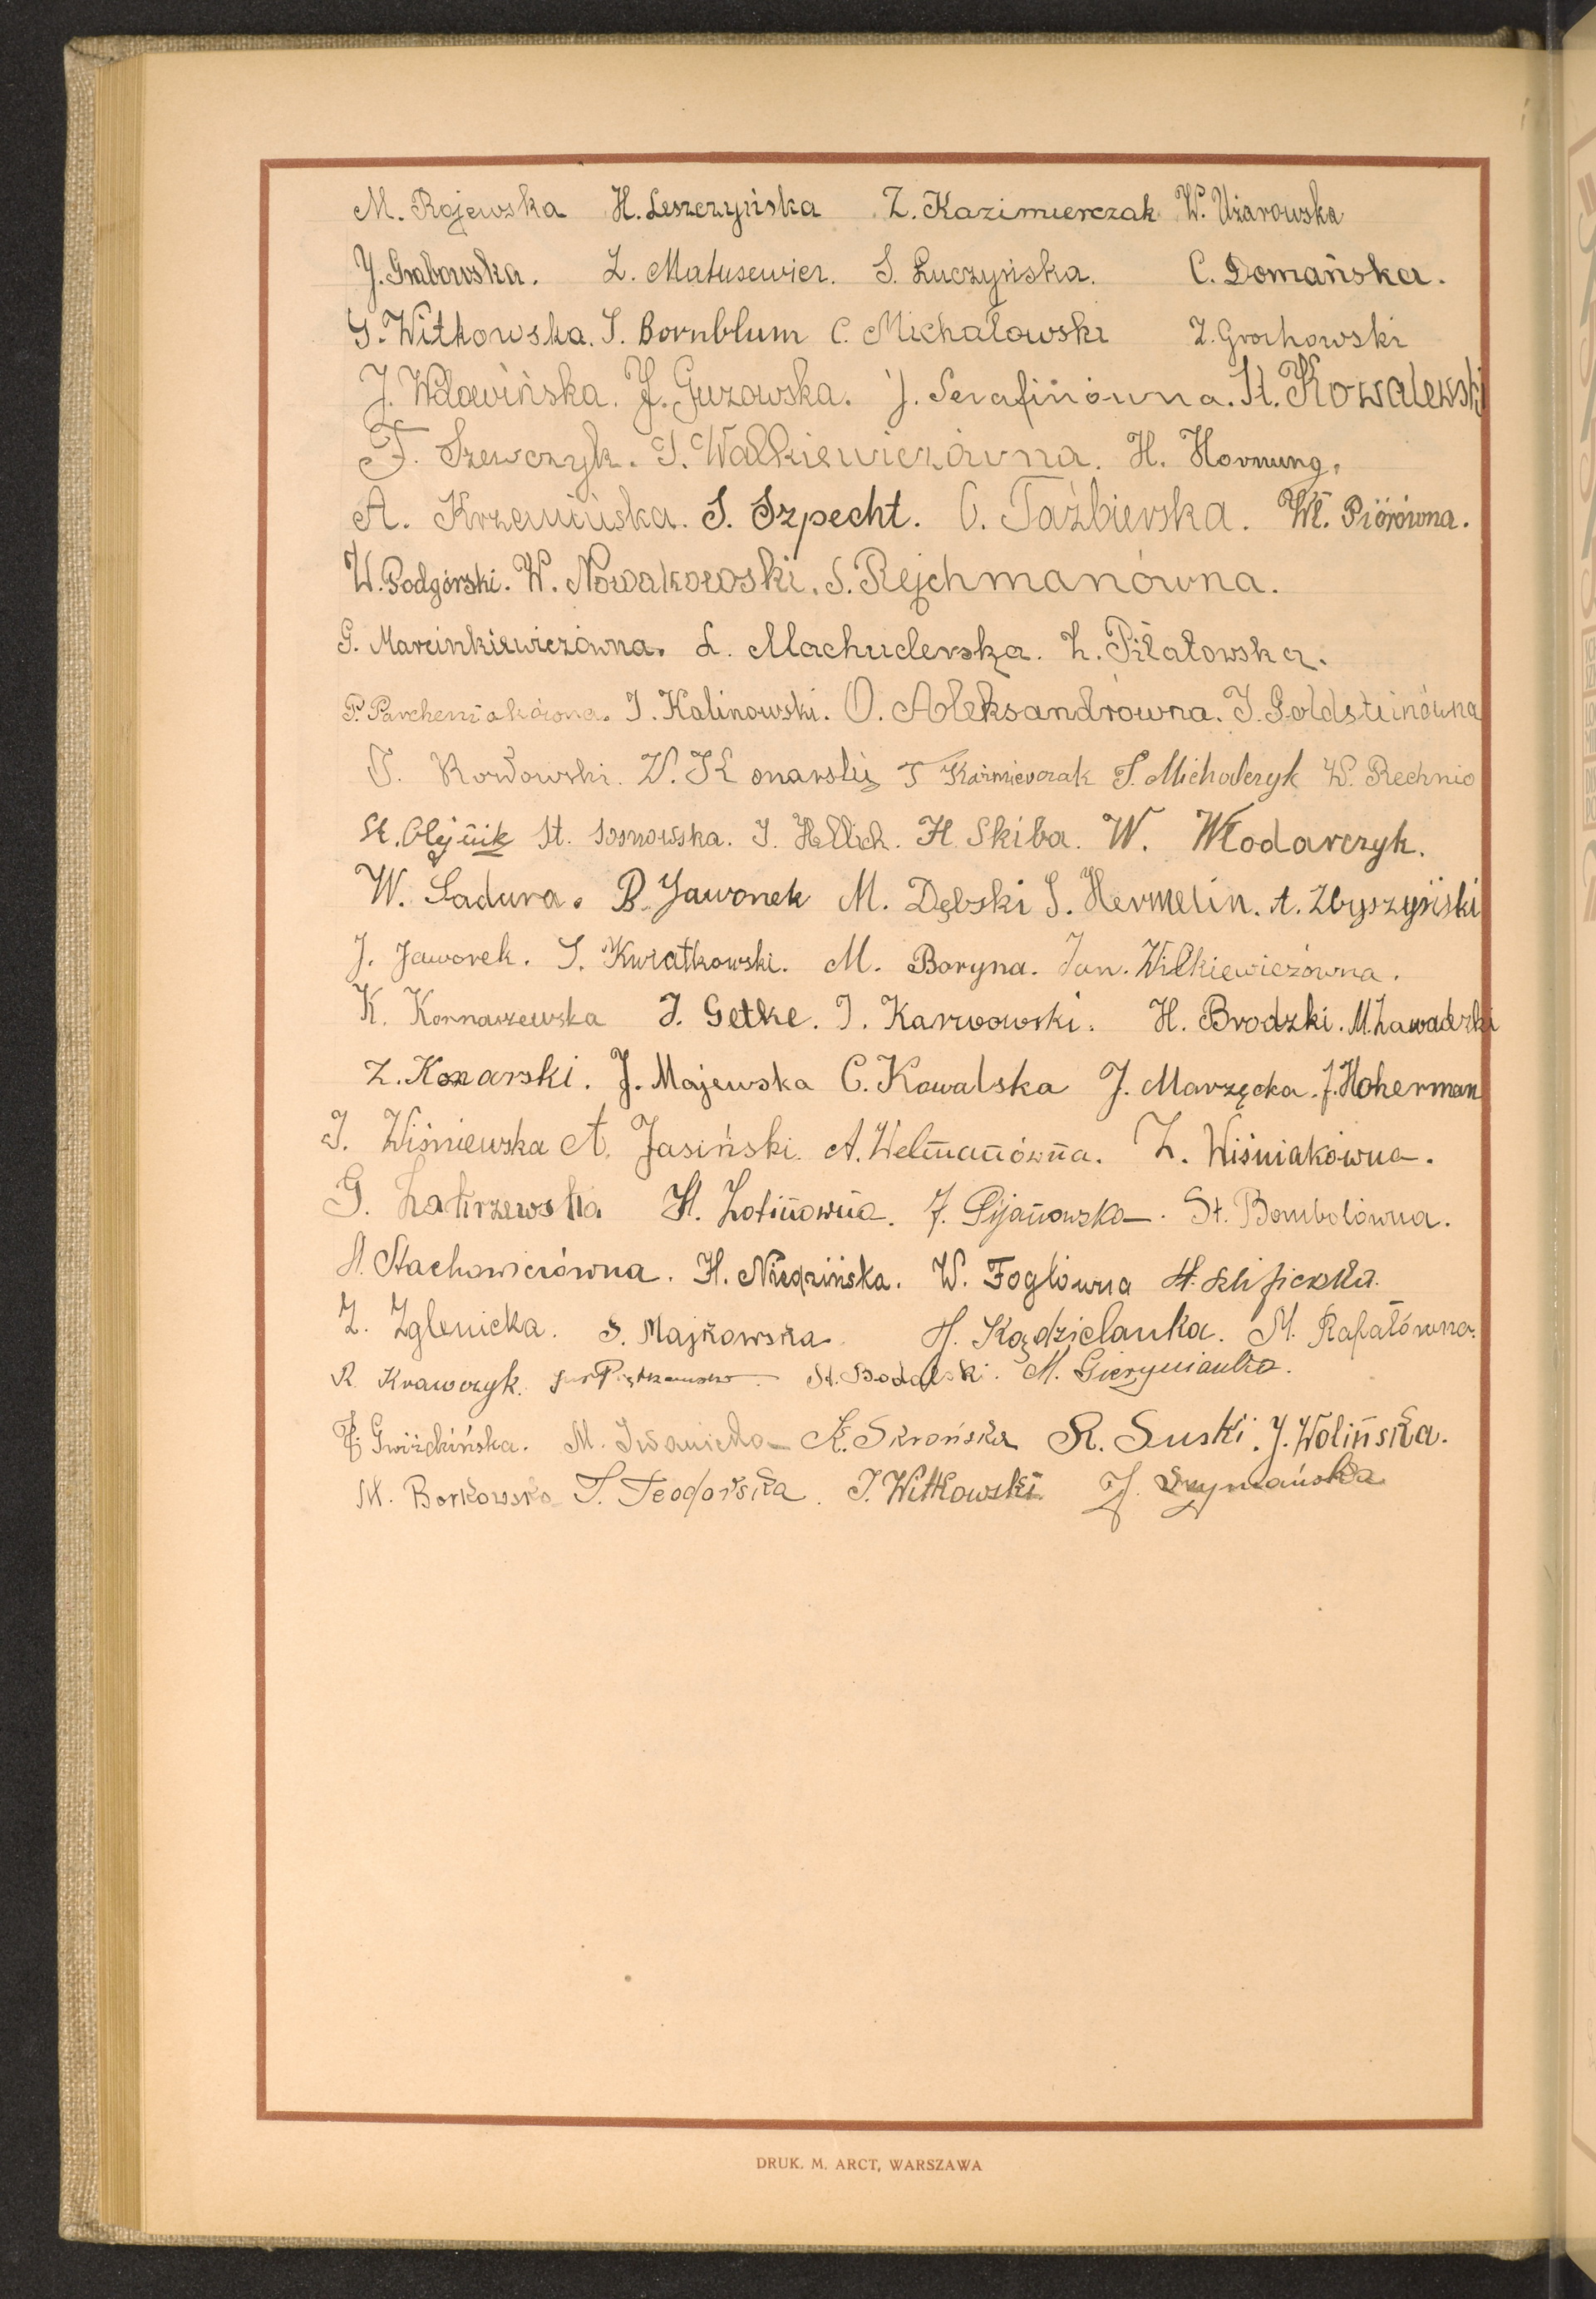 M. Rajewska H. Leszczyńska Z. Kazimierczak W. Użarowska
J. Grabowska. Z. Matusewicz. S. Łuczyńska. C. Domańska.
G. Witkowska. S. Bornblum C. Michałowski Z. Grochowski
J. Wdowińska. J. Guzowska. J. Serafinówna. St. Kowalewski
F. Szewczyk. I. Walkiewiczówna. H. Hornung.
A. Krzemińska. S. Szpecht. C. Taźbierska. Wł. Piórówna.
W. Podgórski. W. Nowakowski. S. Rejchmanówna.
G. Marcinkiewiczówna. L. Machuderska. Z. Piłatowska.
P. Parcheniakówna. J. Kalinowski. O. Aleksandrówna. I. Goldsteinówna
W. Konarski T Kaźmierczak S. Michalczyk W. Rechnio
St. Olejnik St. Sosnowska. I. Hellich. H Skiba. W. Włodarczyk.
W. Sadura. B. Jaworek M. Dębski S. Hermelin. A. Zbyszyński
J. Jaworek. S. Kwiatkowski. M. Boryna. Jan. Wilkiewiczówna.
K. Kornaszewska J. Getke. J. Karwowski. H. Brodzki. M. Zawadzki
Z. Konarski. J. Majewska C. Kowalska J. Marzęcka. J. Hoherman
J. Wiśniewska A. Jasiński. A. Welmanówna. Z. Wiśniakówna.
G. Zakrzewska H. Zotinówna. J. Pijanowska. St. Bombolówna.
A. Stachowiczówna. H. Niedzińska. W. Foglówna H.
Z. Zglenicka. S. Majkowska. H. Kądzielanka. M. Rafałówna.
R. Krawczyk. St. Bodalski. M. Gierymianka.
J. Gwiździńska. M. Iwanicka K. Skrońska R. Suski. J. Wolińska.
M. Borkowska T. Teodorska. J. Witkowski J. Szymańska
DRUK. M. ARCT, WARSZAWA